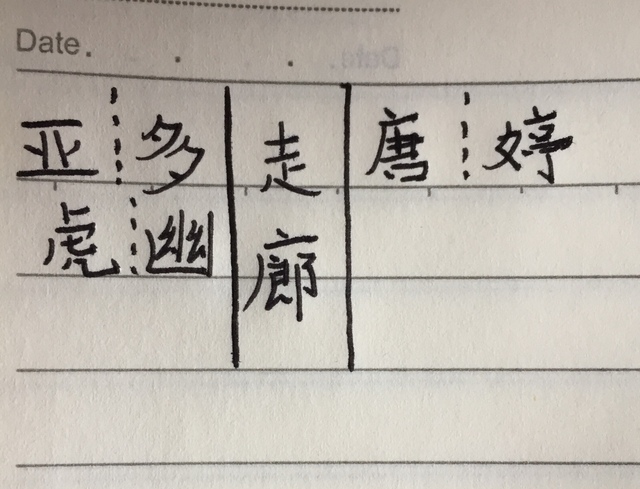 Date. . .
亚 多 走 唐 婷
虎 幽 廊